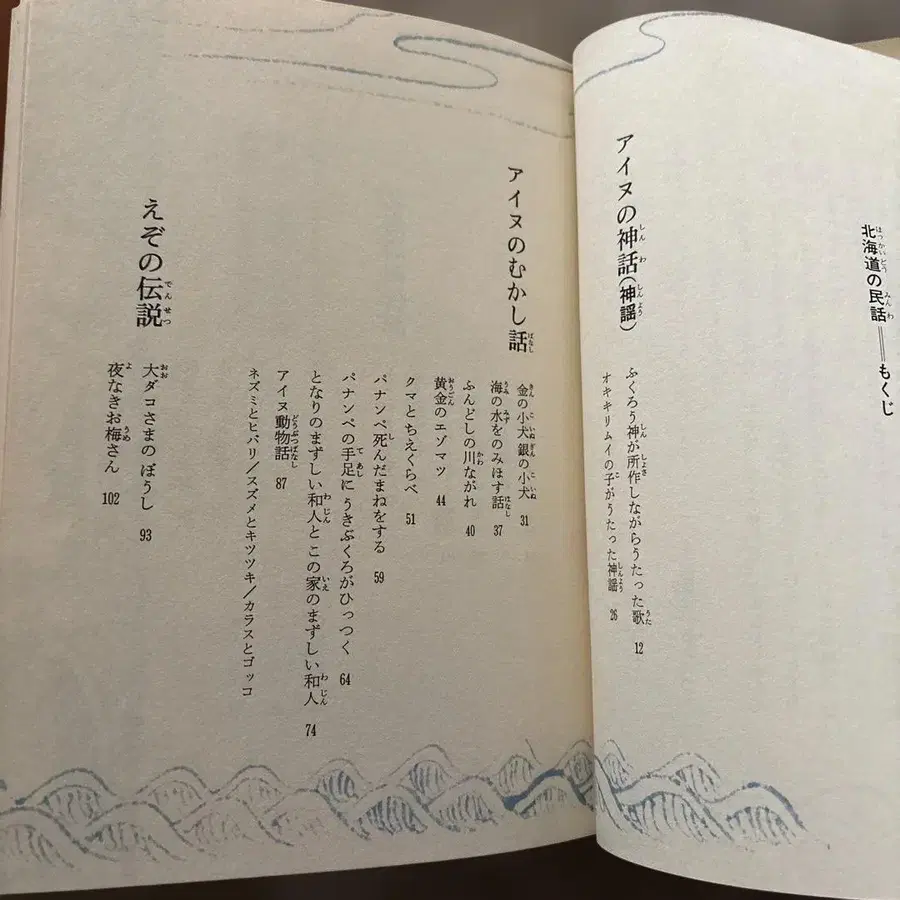 北海道の民話──もくじ
アイヌの神話(神謡)
ふくろう神が所作しながらうたった歌 12
オキキリムイの子がうたった神謡 26
アイヌのむかし話
金の小犬銀の小犬 31
海の水をのみほす話 37
ふんどしの川ながれ 40
黄金のエゾマツ 44
クマとちえくらべ 51
パナンペ死んだまねをする 59
パナンペの手足にうきぶくろがひっつく 64
となりのまずしい和人とこの家のまずしい和人 74
アイヌ動物話 87
ネズミとヒバリ/スズメとキツツキ/カラスとゴッコ
えぞの伝説
大ダコさまのぼうし 93
夜なきお梅さん 102